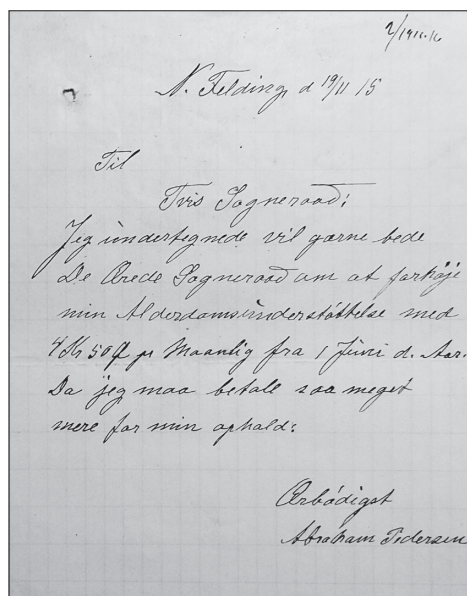 2/1915-16
N. Felding, d 19/11 15
Til
Tvis Sogneraad;
Jeg undertegnede vil gærne bede
De Ærede Sogneraad om at forhöje
min Alderdomsunderstöttelse med
4 Kr 50 Ø pr Maanlig fra 1 Juni d. Aar.
Da jeg maa betale saa meget
mere for min ophold:
Ærbödigst
Abraham Pedersen